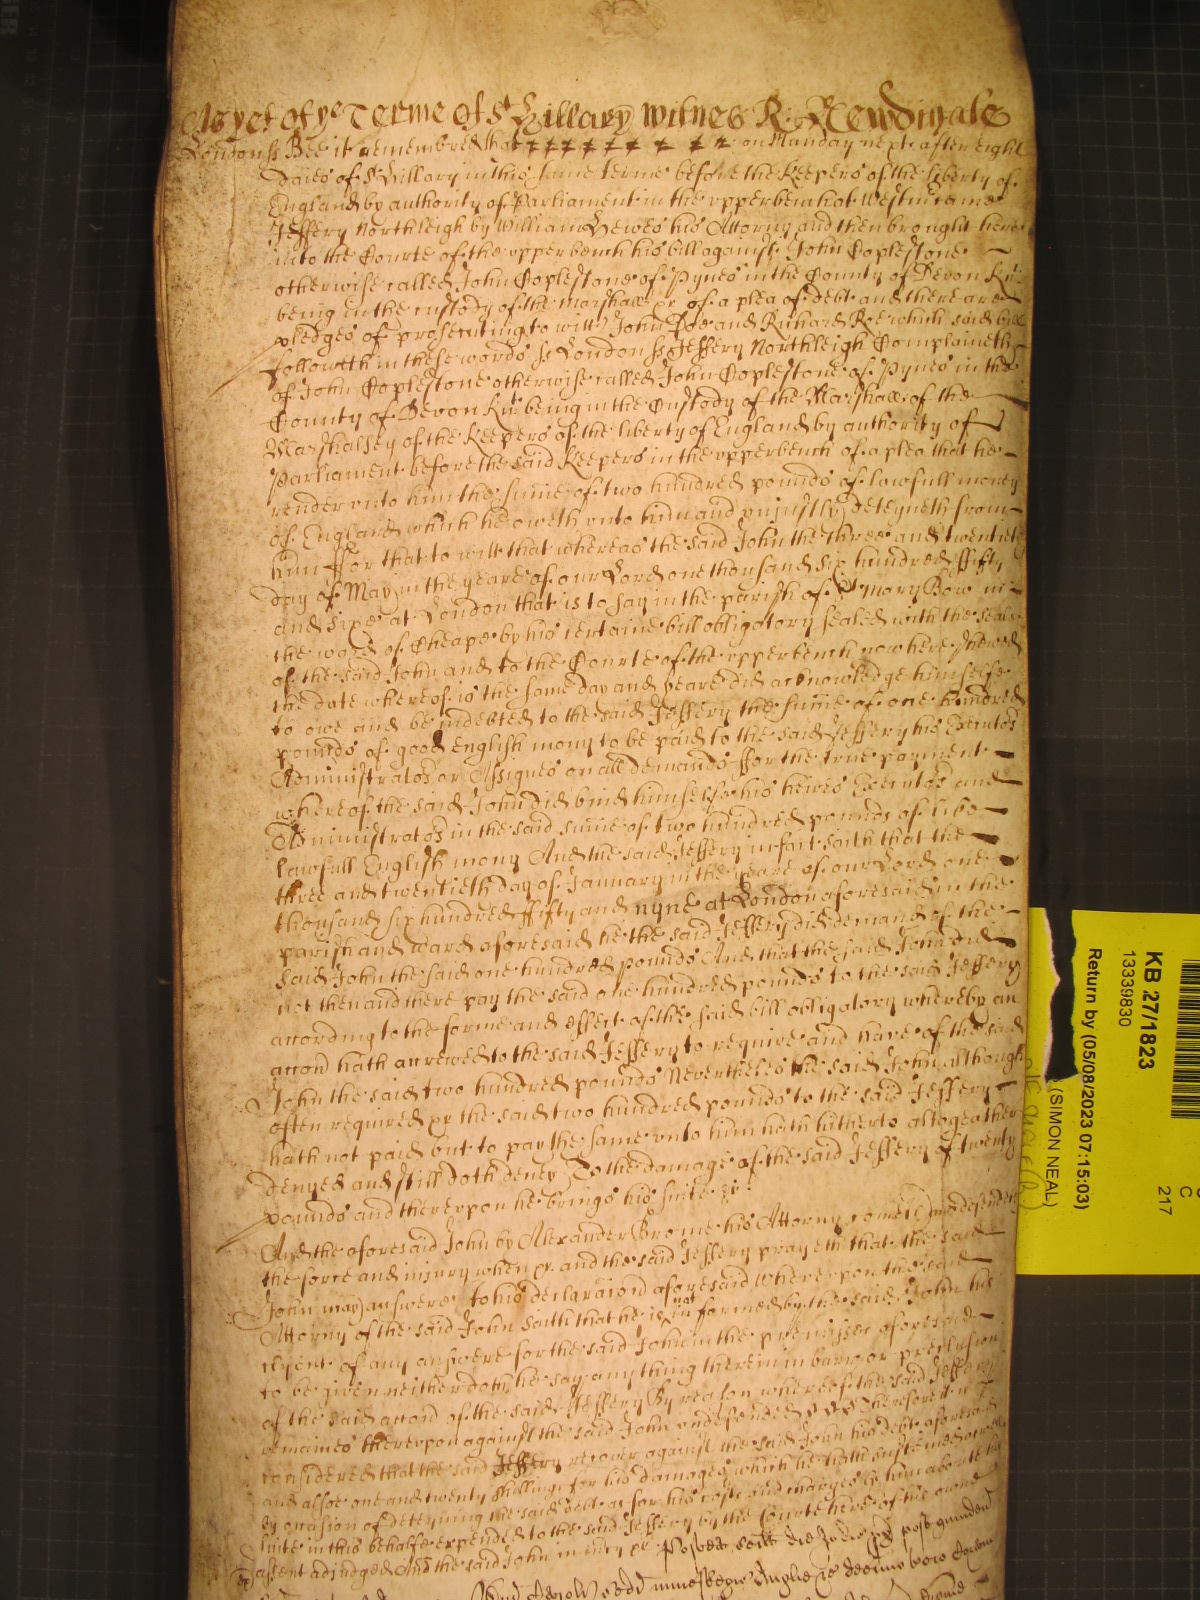 As yet of ye Terme of St Hillary Witnes R: Newdigate
London ss Bee it remembred that on Munday next after eight
daies of St Hillary in this same terme before the Keepers of the liberty of
England by authority of Parliament in the upper bench at Westminster
Jeffery Northleigh by William Hewes his Attorny and then brought here
into the Courte of the upper bench his bill against John Coplestone
otherwise called John Coplestone of Pynes in the County of Devon Kt
being in the custody of the Marshall &c of a plea of debt and there are
pledges of prosecuting to witt John Doe and Richard Roe which said bill
followeth in these words ss London ss Jeffery Northleigh Complaineth
of John Coplestone otherwise called John Coplestone of Pynes in the
County of Devon Kt being in the Custody of the Marshall of the
Marshalsey of the Keepers of the liberty of England by authority of
Parliament before the said Keepers in the upper bench of a plea that he
render unto him the sume of two hundred pounds of lawfull money
of England which he oweth unto him and unjustly deteyneth from
him ffor that to witt that whereas the said John the three and twentieth
day of May in the yeare of our Lord one thousand six hundred ffifty
and sixe at London that is to say in the parish of St Mary Bow in
the ward of Cheape by his certaine bill obligatory sealed with the seale
of the said John and to the Courte of the upper bench now here shewed
the date whereof is the same day and yeare did acknowledge himselfe
to owe and be indebted to the said Jeffery the sume of one hundred
pounds of good English mony to be paid to the said Jeffery his Executors
Administrators or Assignes on all demands ffor the true payment
whereof the said John did bind himselfe his heires Executors and
Administrators in the said sume of two hundred pounds of like
lawfull English mony And the said Jeffery in fact saith that the
three and twentieth day of January in the yeare of our Lord one
thousand six hundred ffifty and nyne at London aforesaid in the
parish and ward aforesaid he the said Jeffery did demand of the
said John the said one hundred pounds And that the said John did
not then and there pay the said one hundred pounds to the said Jeffery
according to the forme and effect of the said bill obligatory whereby an
accion hath accrewed to the said Jeffery to require and have of the said
John the said two hundred pounds Neverthelesse the said John although
often required &c the said two hundred pounds to the said Jeffery
hath not paid but to pay the same unto him hath hitherto altogeather
denyed and still doth deney To the damage of the said Jeffery of twenty
pounds and thereupon he brings his suite &c
And the aforesaid John by Alexander Brome his Attorny cometh and defendeth
the force and injury when &c and the said Jeffery prayeth that the said
John may answere to his declaracion aforesaid whereupon the said
Attorny of the said John saith that he is not informed by the said John his
clyent of any answere for the said John in the premisses aforesaid
to be given neither doth he say any thing therein in barre or preclusion
of the said accion of the said Jeffery By reason whereof the said Jeffery
remaines thereupon against the said John undefended &c Therefore it is
considered that the said Jeffery recover against the said John his debt aforesaid
and alsoe one and twenty shillings for his damages which he hath susteined aswell
by occasion of deteyning the said debt as for his costs and charges by him about his
suite in this behalfe expended to the said Jeffery by the Courte here of his owne
assent adjudged And the said John in mercy &c
KB 27/1823
13339830
Return by (05/08/2023 07:15:03)
(SIMON NEAL)
C
217